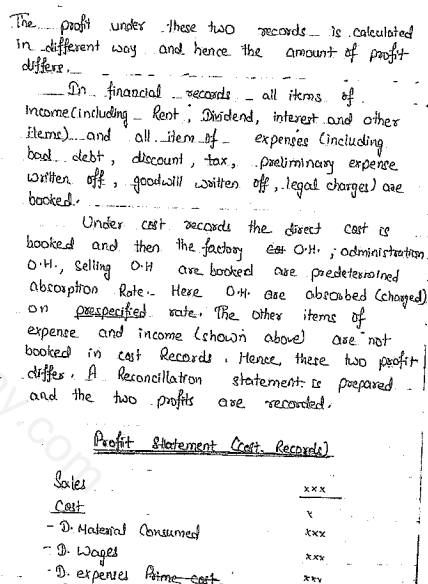 The profit under these two records is calculated
in different way and hence the amount of profit
differe.
In financial records all items of
Income (including Rent, Dividend, interest and other
items) and all item of expenses (including
bad debt, discount, tax, preliminary expense
written off, goodwill written off, legal charges) are
booked.
Under cost records the direct cost is
booked and then the factory O.H., administration
O.H., selling O.H are booked are predetermined
absorption Rate. Here O.H. are absorbed (charged)
on prespecified rate. The other items of
expense and income (shown above) are not
booked in cost Records. Hence, these two profit
differ. A Reconcillation statement is prepared
and the two profits are recorded.
Profit Statement (Cost. Records)
Sales xxx
Cost x
- D. Material Consumed xxx
- D. Wages xxx
- D. expenses Prime cost xxx